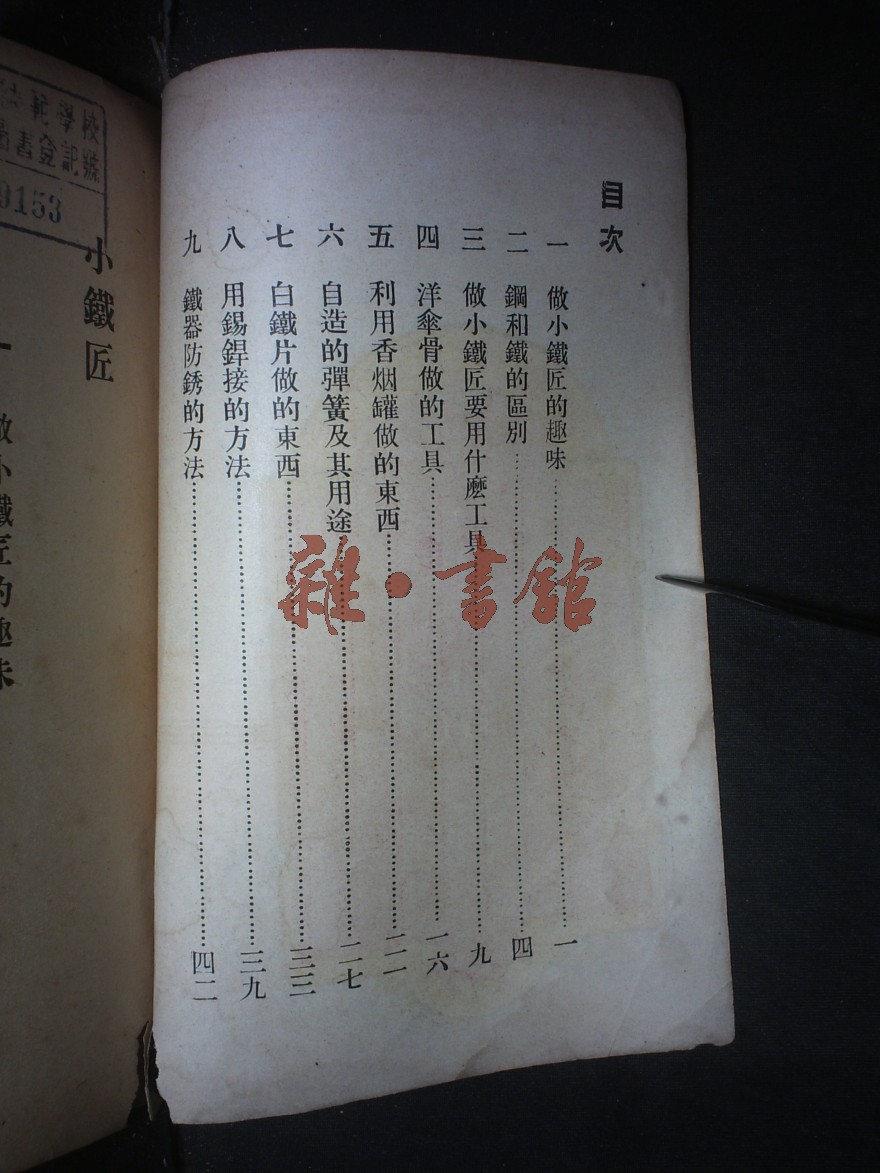 目次
一 做小鐵匠的趣味……一
二 鋼和鐵的區別……四
三 做小鐵匠要用什麽工具……九
四 洋傘骨做的工具……一六
五 利用香烟罐做的東西……二一
六 自造的彈簧及其用途……二七
七 白鐵片做的東西……三三
八 用錫銲接的方法……三九
九 鐵器防銹的方法……四二
雜·書館
範學校
書登記號
9153
小鐵匠
一 做小鐵匠的趣味